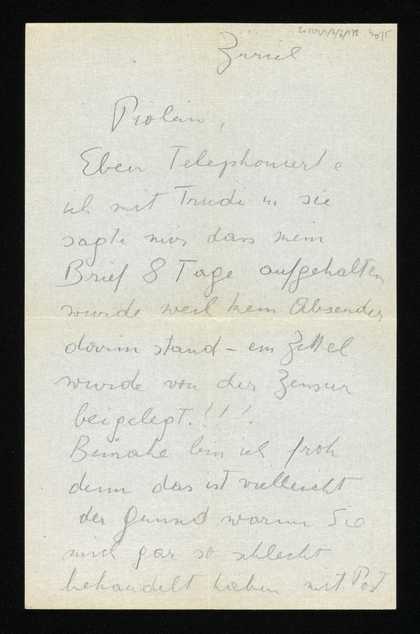 Zürich
Piolin,
Eben Telephonierte
ich mit Trude u sie
sagte mir dass mein
Brief 8 Tage aufgehalten
wurde weil kein Absender
darin stand – ein Zettel
wurde von der Zensur
beigelegt.!!!
Beinahe bin ich froh
denn das ist vielleicht
der Grund warum Sie
mich gar so schlecht
behandelt haben mit Post